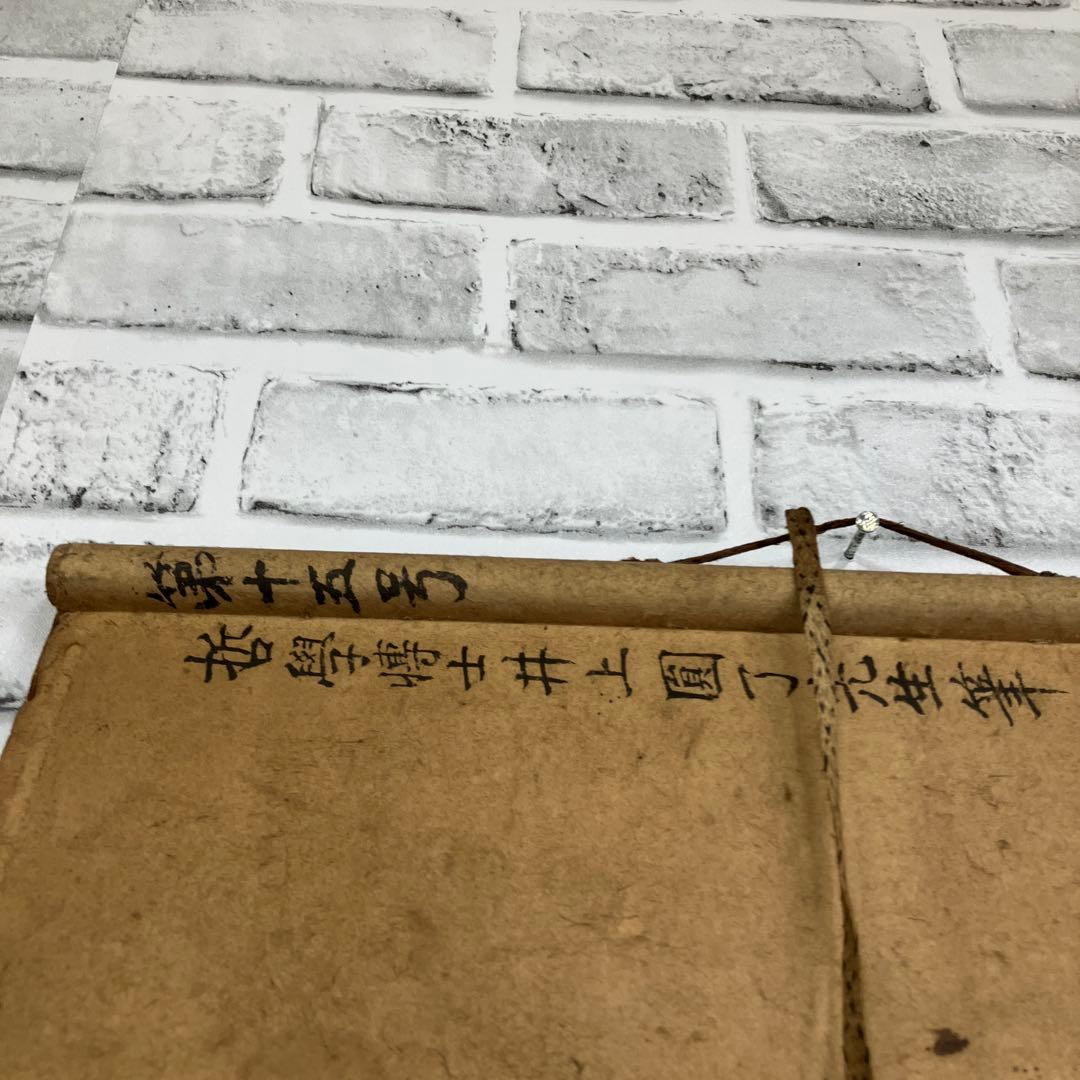 第十五号
哲學博士井上圓了先生筆